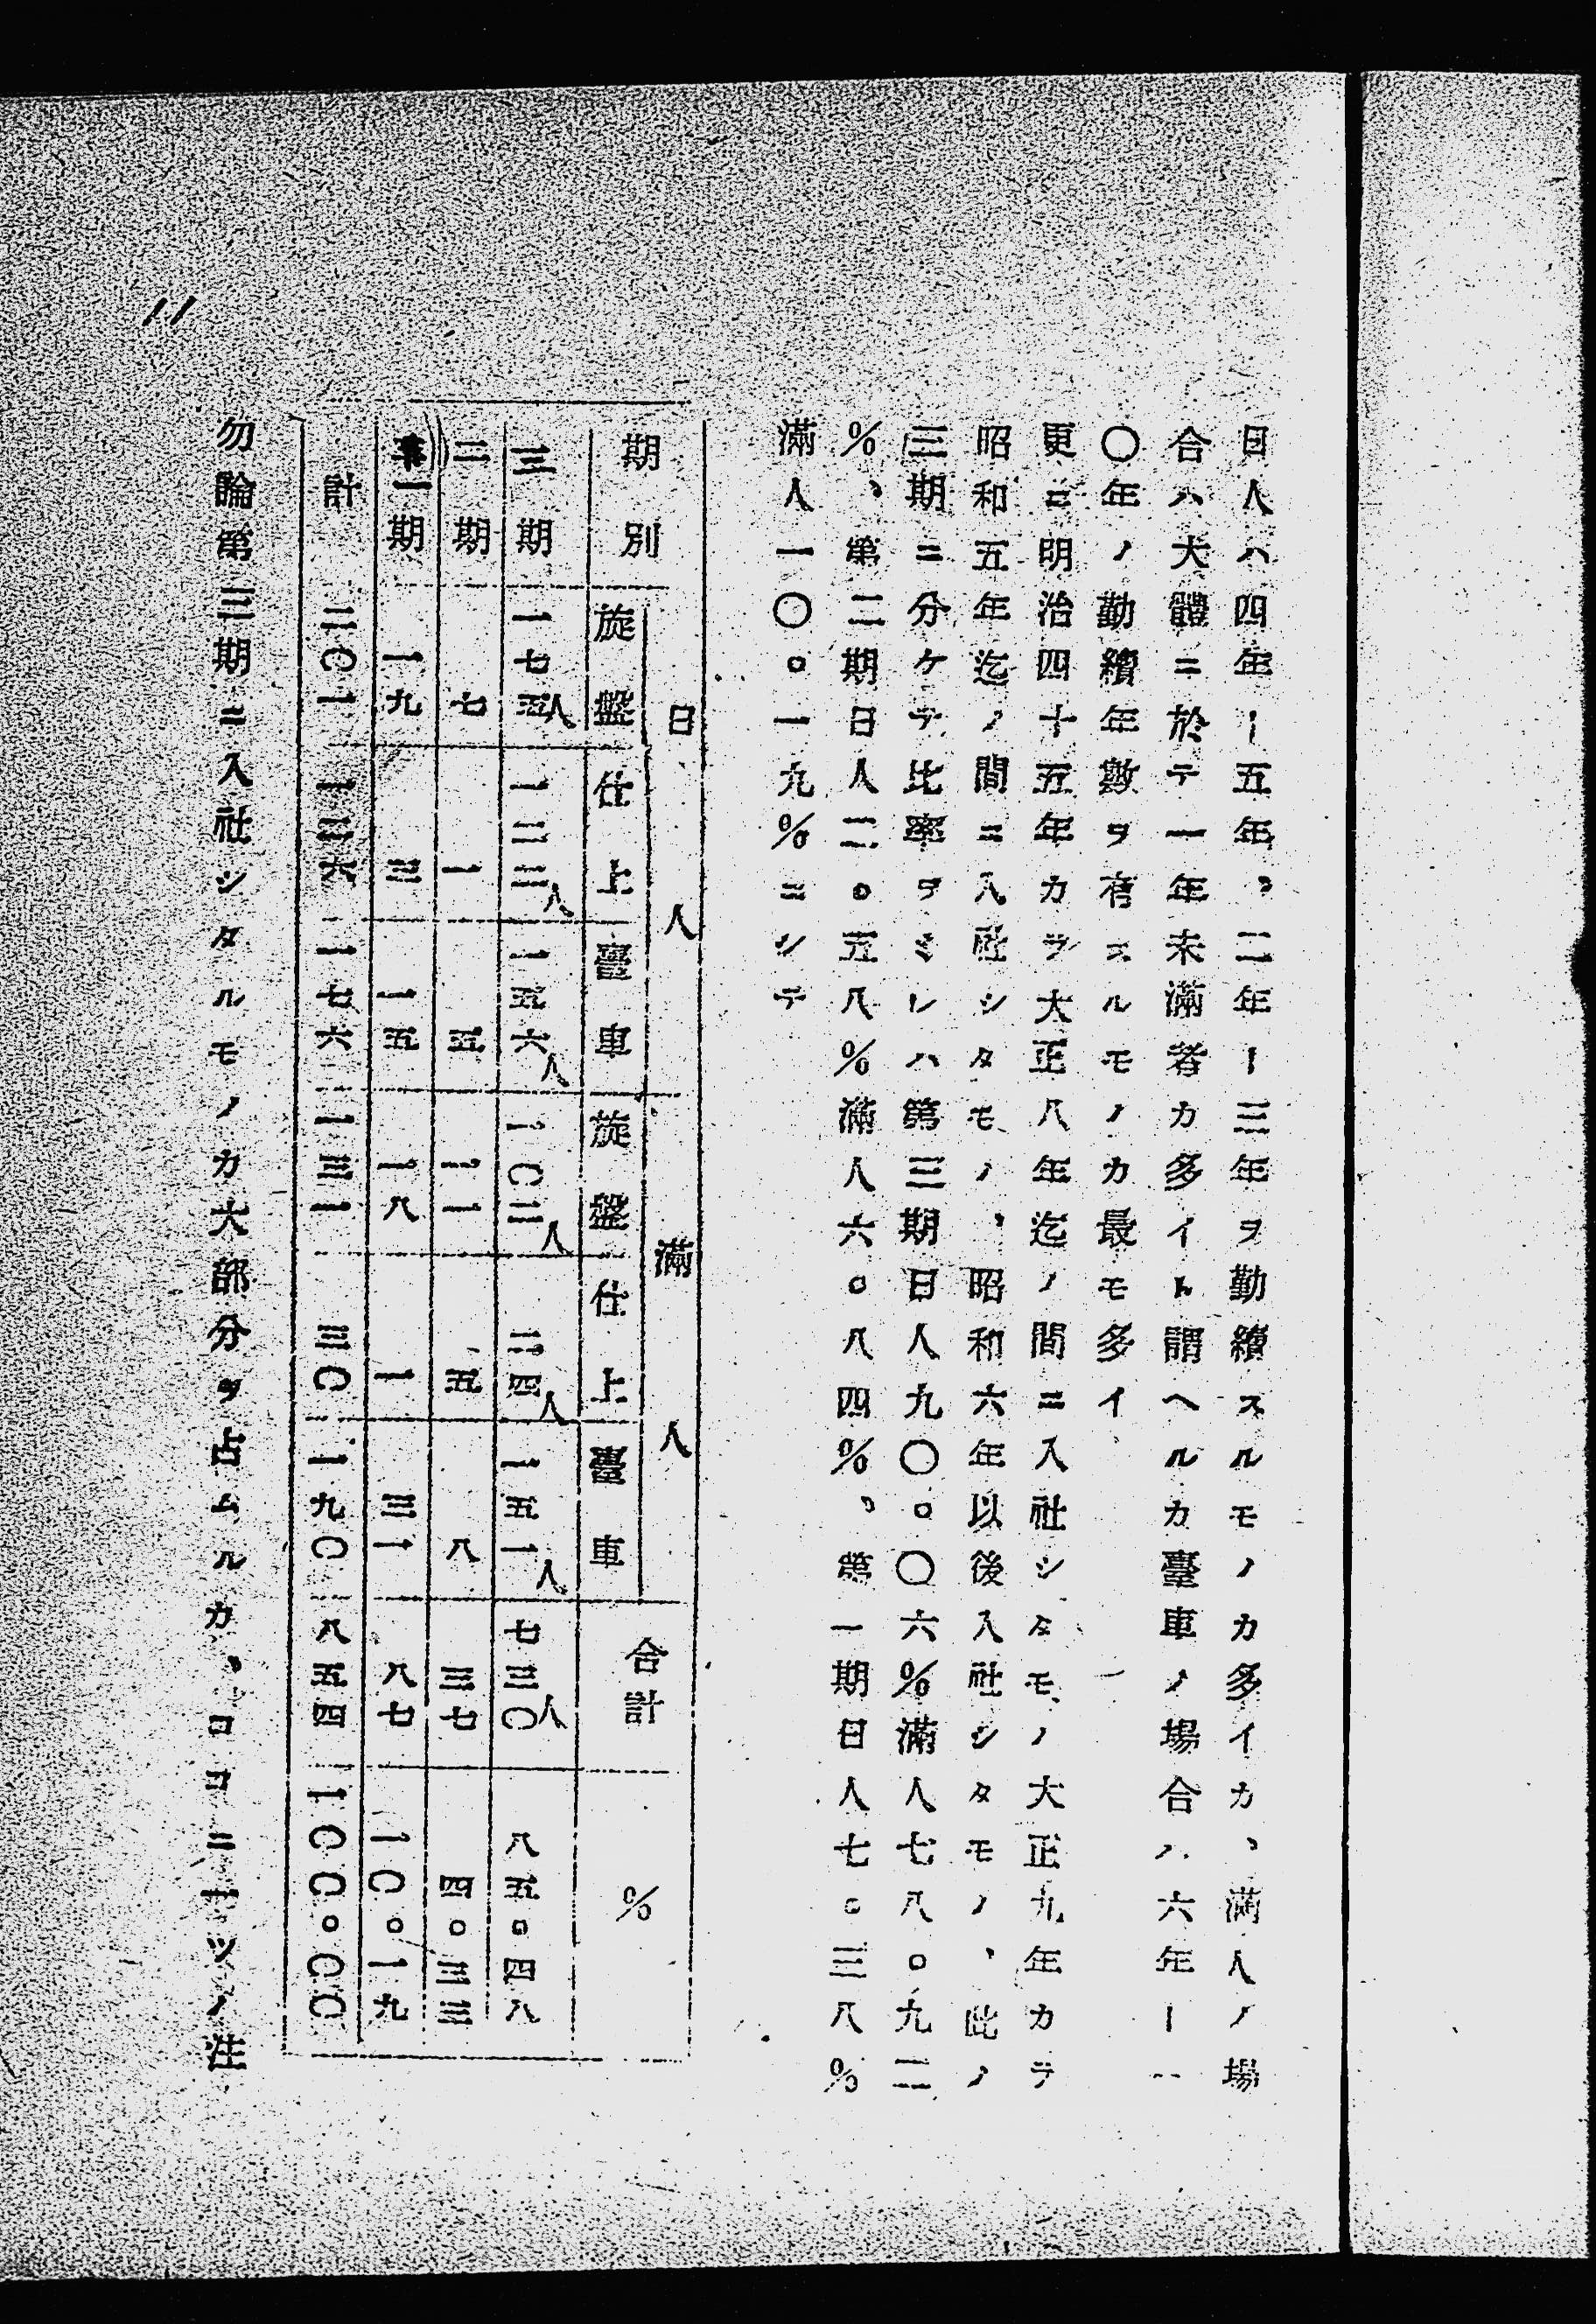 日人ハ四年ー五年、二年ー三年ヲ勤續スルモノカ多イカ、滿人ノ場
合ハ大體ニ於テ一年未滿者カ多イト謂ヘルカ臺車ノ場合ハ六年ー一
〇年ノ勤續年數ヲ有スルモノカ最モ多イ、
更ニ明治四十五年カラ大正八年迄ノ間ニ入社シタモノ大正九年カラ
昭和五年迄ノ間ニ入社シタモノ、昭和六年以後入社シタモノ、此ノ
三期ニ分ケテ比率ヲミレハ第三期日人九〇。〇六%滿人七八。九二
%、第二期日人二。五八%滿人六。八四%、第一期日人七。三八%
滿人一〇。一九%ニシテ
期別 日人 滿人 合計 %
旋盤 仕上 臺車 旋盤 仕上 臺車
三期 一七五人 一二二人 一五六人 一〇二人 二四人 一五一人 七三〇人 八五。四八
二期 七 一 五 一一 五 八 三七 四。三三
第一期 一九 三 一五 一八 一 三一 八七 一〇。一九
計 二〇一 一二六 一七六 一三一 三〇 一九〇 八五四 一〇〇。〇〇
勿論第三期ニ入社シタルモノカ大部分ヲ占ムルカ、ココニ一ツノ注